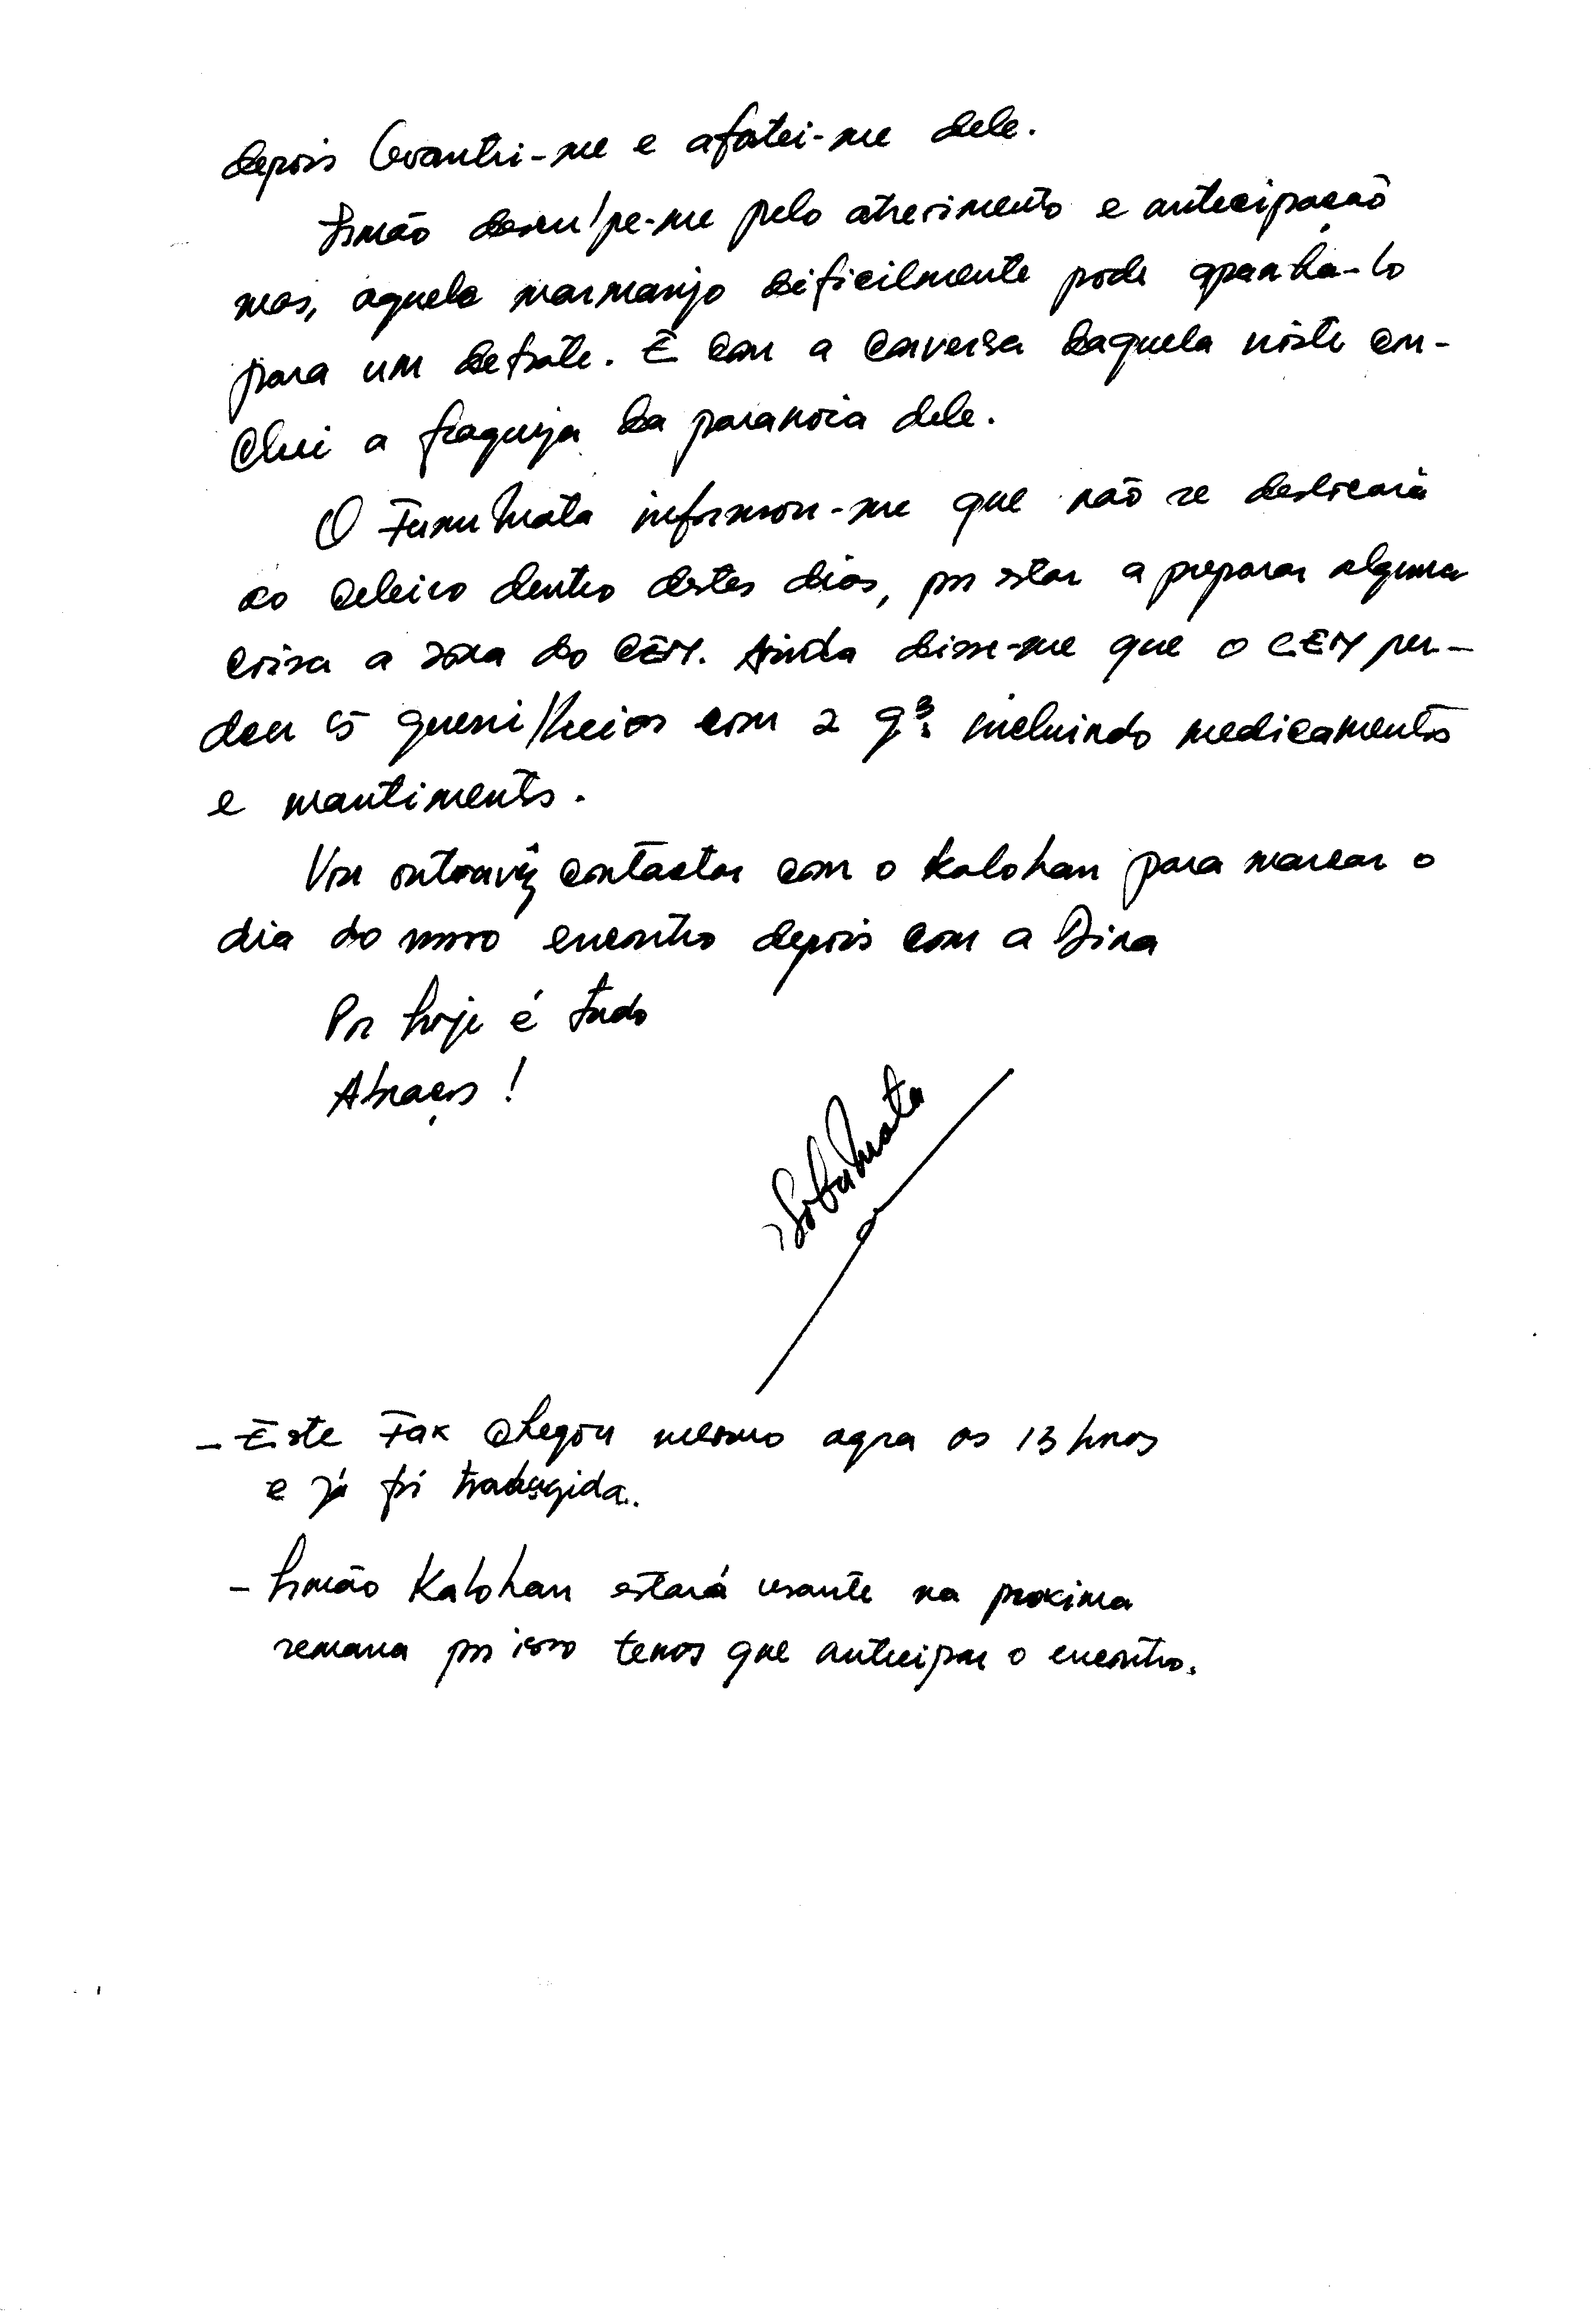 depois levantei-me e afastei-me dele.
Irmão desculpe-me pelo atrevimento e antecipação
mas, aquele marmanjo dificilmente pode apanha-lo
para um debate. E com a conversa daquela noite con-
clui a fraqueza da paranoia dele.
O Tumuhata informou-me que não se deslicará
ao Celeiro dentro destes dias, por estar a preparar alguma
coisa a zona do CEM. Ainda disse-me que o CEM per-
deu 5 guerrilheiros com 2 incluindo medicamentos
e mantimentos.
Vou outravêz contactar com o Kalohan para marcar o
dia do novo encontro depois com a Dina
Por hoje é tudo
Abraços!
- Este Fax chegou mesmo agora as 13 horas
e já foi traduzida.
- Irmão Kalohan estará usante na proxima
semana por isso temos que antecipar o encontro.